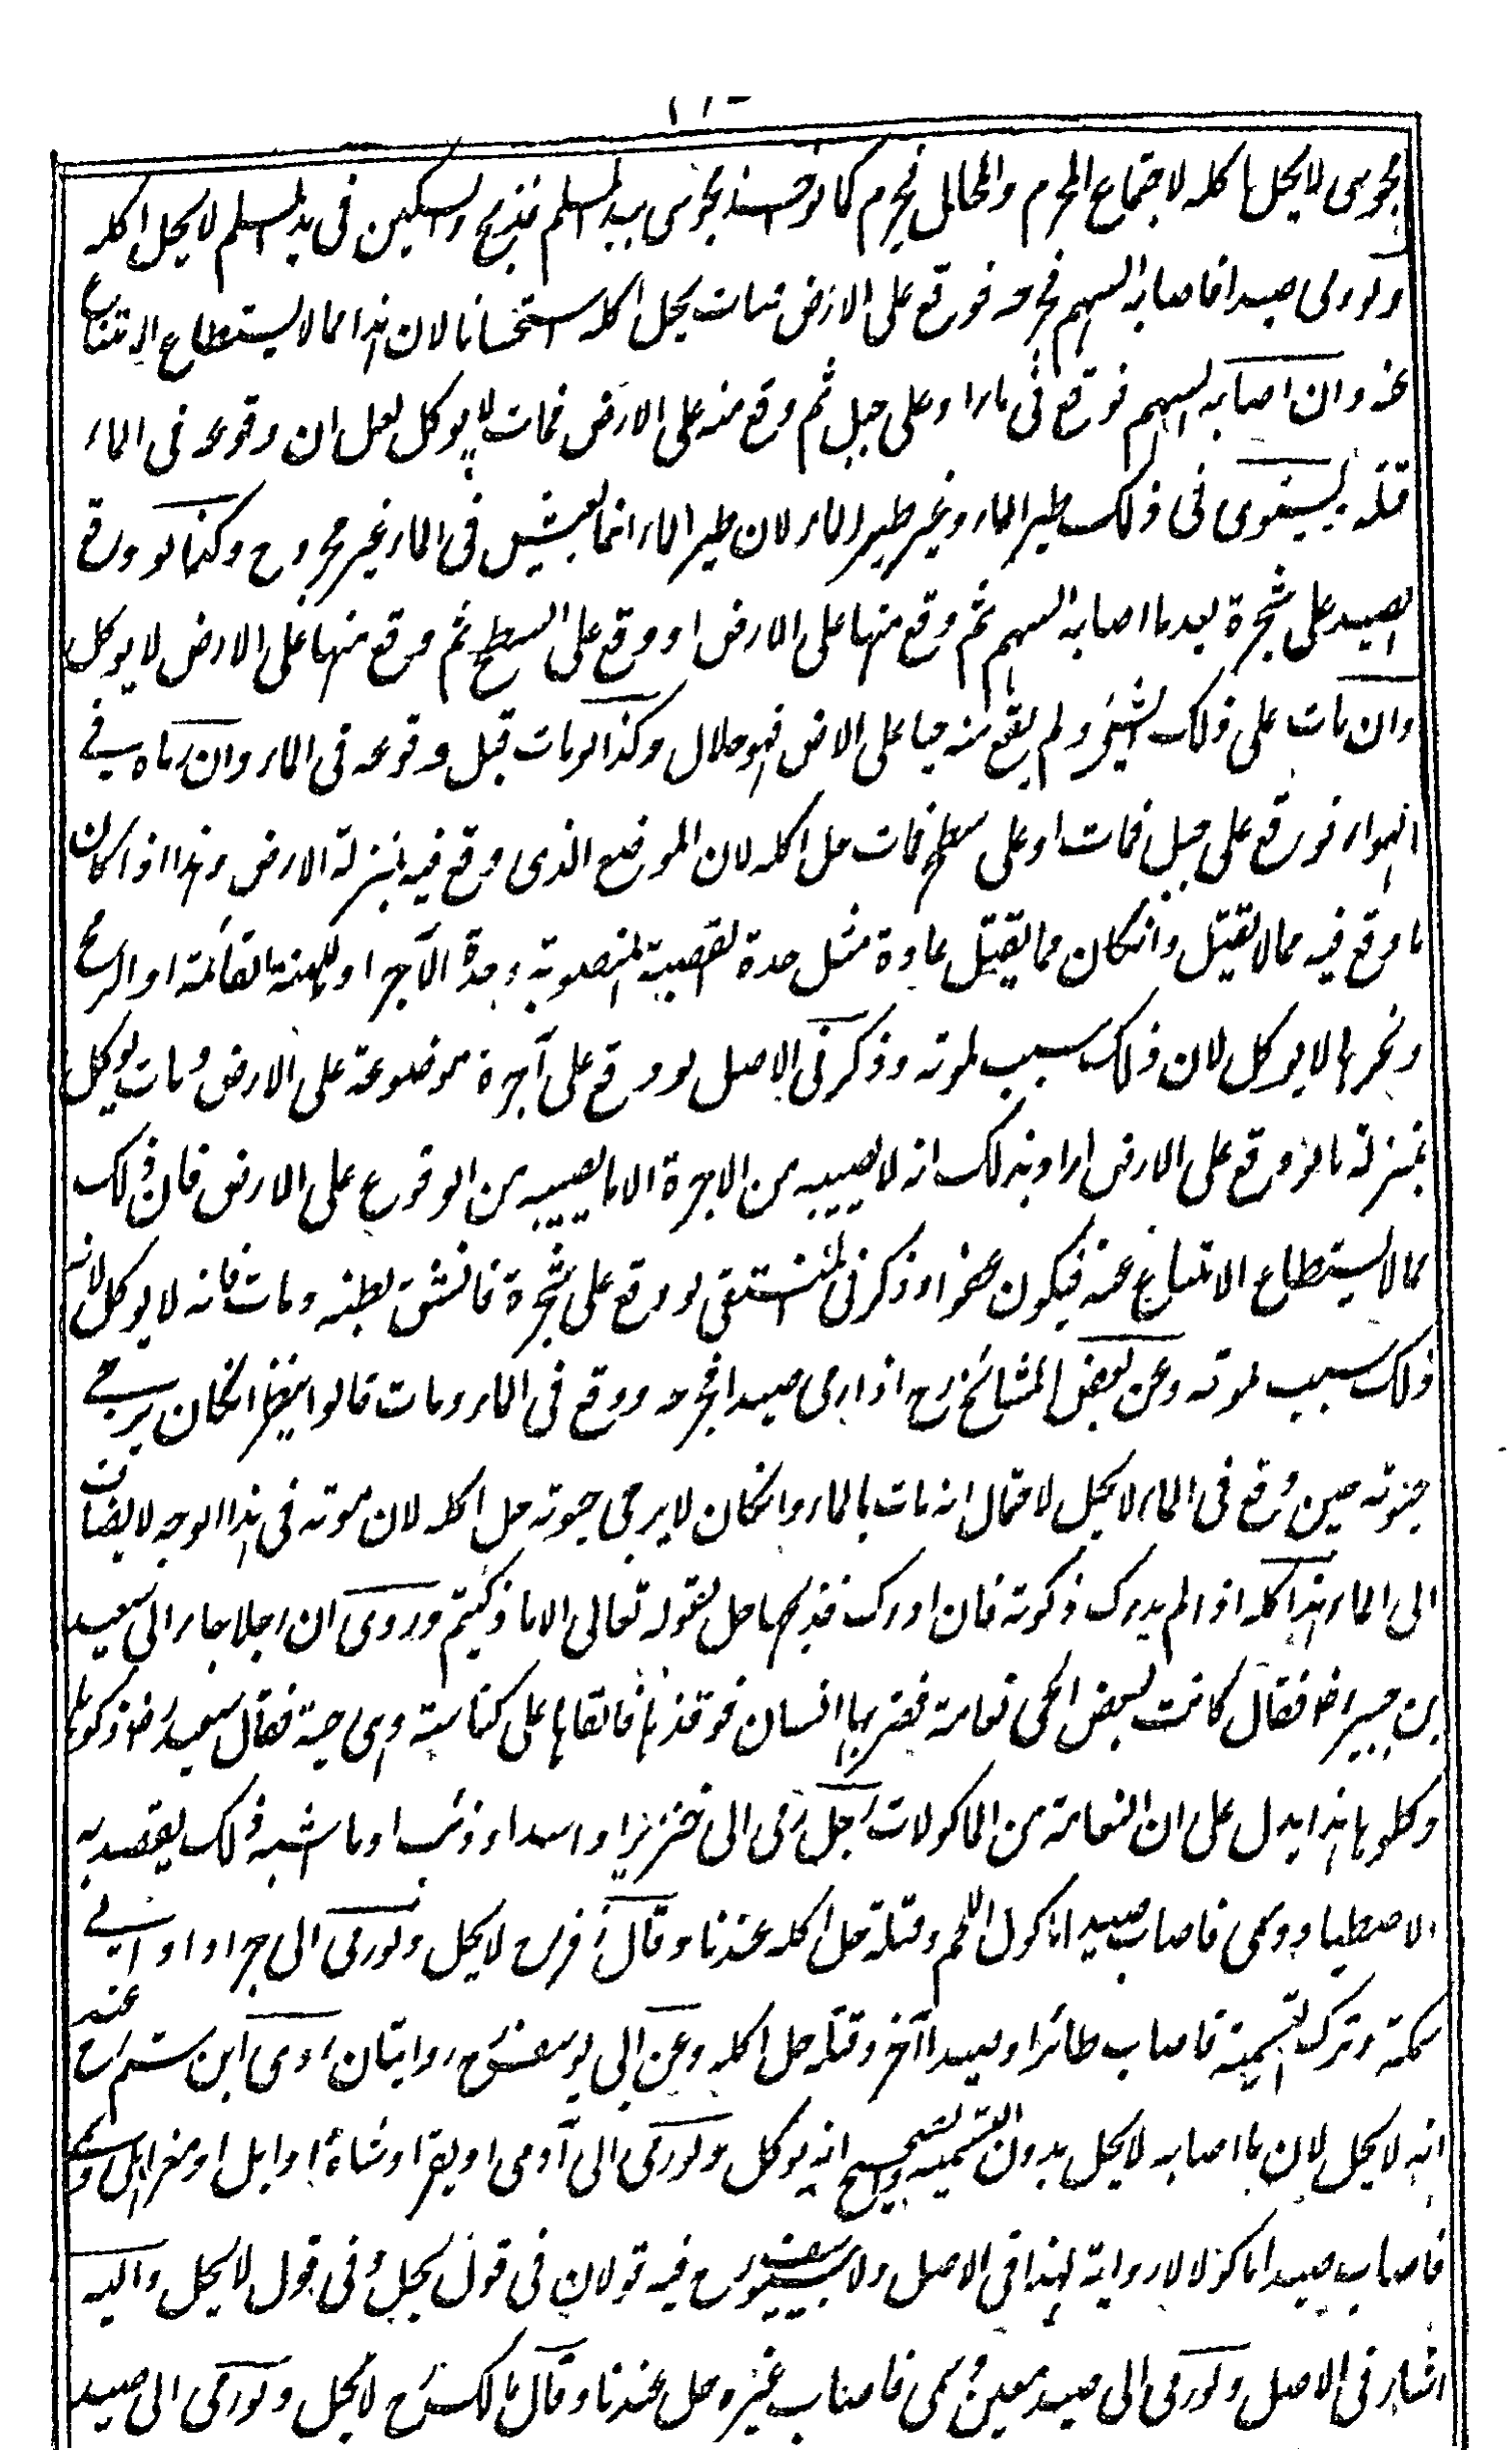 مجوسى لا يحل اكله لاجتماع المحرم والمحلل فيحرم كما لو اخذ مجوسى بيد المسلم فذبح والسكين فى يد المسلم لا يحل اكله
ولو رمى صيدا فاصابه السهم فجرحه فوقع على الارض فمات يحل اكله استحسانا لان هذا مما لا يستطاع الامتناع
عنه وان اصابه السهم فوقع فى ماء او على جبل ثم وقع منه على الارض فمات لا يوكل لعل ان وقوعه فى الماء
قتله ويستوى فى ذلك طير الماء وغير طير الماء لان طير الماء انما يعيش فى الماء غير مجروح وكذا لو وقع
الصيد على شجرة بعد ما اصابه السهم ثم وقع منها على الارض او وقع على السطح ثم وقع منها على الارض لا يوكل
وان مات على ذلك الشيئ ولم يقع منه حيا على الارض فهو حلال وكذا لو مات قبل وقوعه فى الماء وان رماه فى
الهواء فوقع على جبل فمات او على سطح فمات حل اكله لان الموضع الذى وقع فيه بمنزلة الارض وهذا اذا كان
ما وقع فيه مما لا يقتل وانكان مما يقتل عادة مثل حدة القصبة المنصوبة وحدة الآجر او اللبنة القائمة او الرمح
ونحوها لا يوكل لان ذلك سبب لموته وذكر فى الاصل لو وقع على آجرة موضوعة على الارض ومات يوكل
بمنزلة ما لو وقع على الارض اراد بذلك انه لا يصيبه من الاجرة الا ما يصيبه من الوقوع على الارض فان ذلك
مما لا يستطاع الامتناع عنه فيكون عفوا وذكر فى المنتقى لو وقع على شجرة فانشق بطنه ومات فانه لا يوكل لان
ذلك سبب لموته وعن بعض المشائخ رح اذا رمى صيدا فجرحه ووقع فى الماء ومات قالوا ينظر انكان يرجى
حيوته حين وقع فى الماء لا يحل لاحتمال انه مات بالماء وانكان لا يرجى حيوته حل اكله لان موته فى هذا الوجه لا يضاف
الى الماء هذا كله اذا لم يدرك ذكوته فان ادرك فذبحها حل لقوله تعالى الا ما ذكيتم وروى ان رجلا جاء الى سعيد
بن جبير رض فقال كانت لبعض الحى نعامة فضربها انسان فوقذها فالقاها على كناسة وهى حية فقال سعيد رض ذكوها
وكلوها هذا يدل على ان النعامة من الماكولات رجل رمى الى خنزير او اسد او ذئب او ما اشبه ذلك يقصد به
الاصطياد وسمى فاصاب صيدا ماكول اللحم وقتله حل اكله عندنا وقال زفر رح لا يحل ولو رمى الى جراد او الى
سمكة وترك التسمية فاصاب طائرا او صيدا آخر وقتله حل اكله وعن ابى يوسف رح روايتان روى ابن رستم رح عنه
انه لا يحل لان ما اصابه لا يحل بدون التسمية والصحيح انه يوكل ولو رمى الى آدمى او بقر او شاة او ابل او معز اهلى وسمى
فاصاب صيدا ماكولا لا رواية لهذا فى الاصل ولابى يوسف رح فيه قولان فى قول يحل وفى قول لا يحل واليه
اشار فى الاصل ولو رمى الى صيد معين وسمى فاصاب غيره حل عندنا وقال مالك رح لا يحل ولو رمى الى صيد